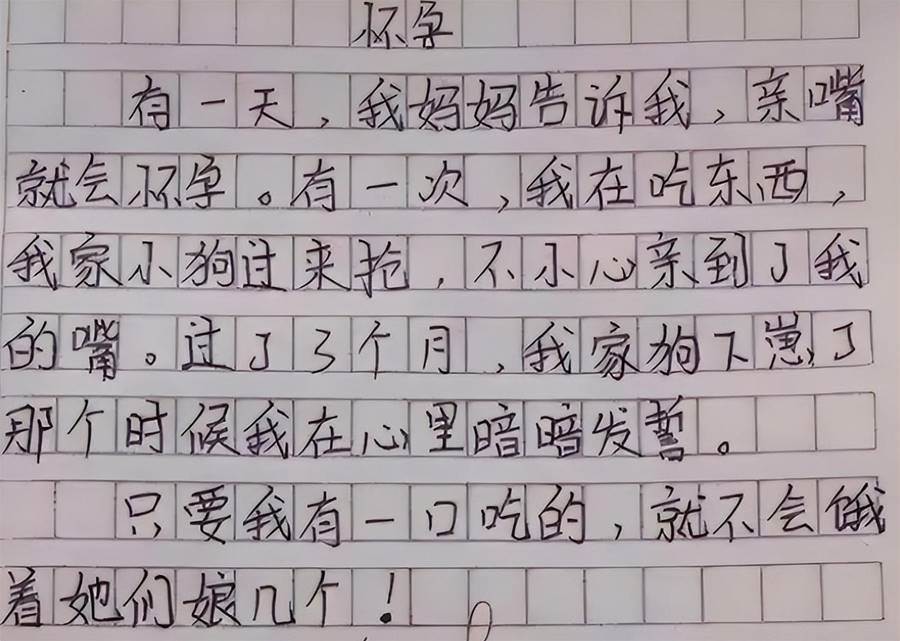 怀孕
有一天，我妈妈告诉我，亲嘴
就会怀孕。有一次，我在吃东西，
我家小狗过来抢，不小心亲到了我
的嘴。过了3个月，我家狗下崽了
那个时候我在心里暗暗发誓。
只要我有一口吃的，就不会饿
着她们娘几个！